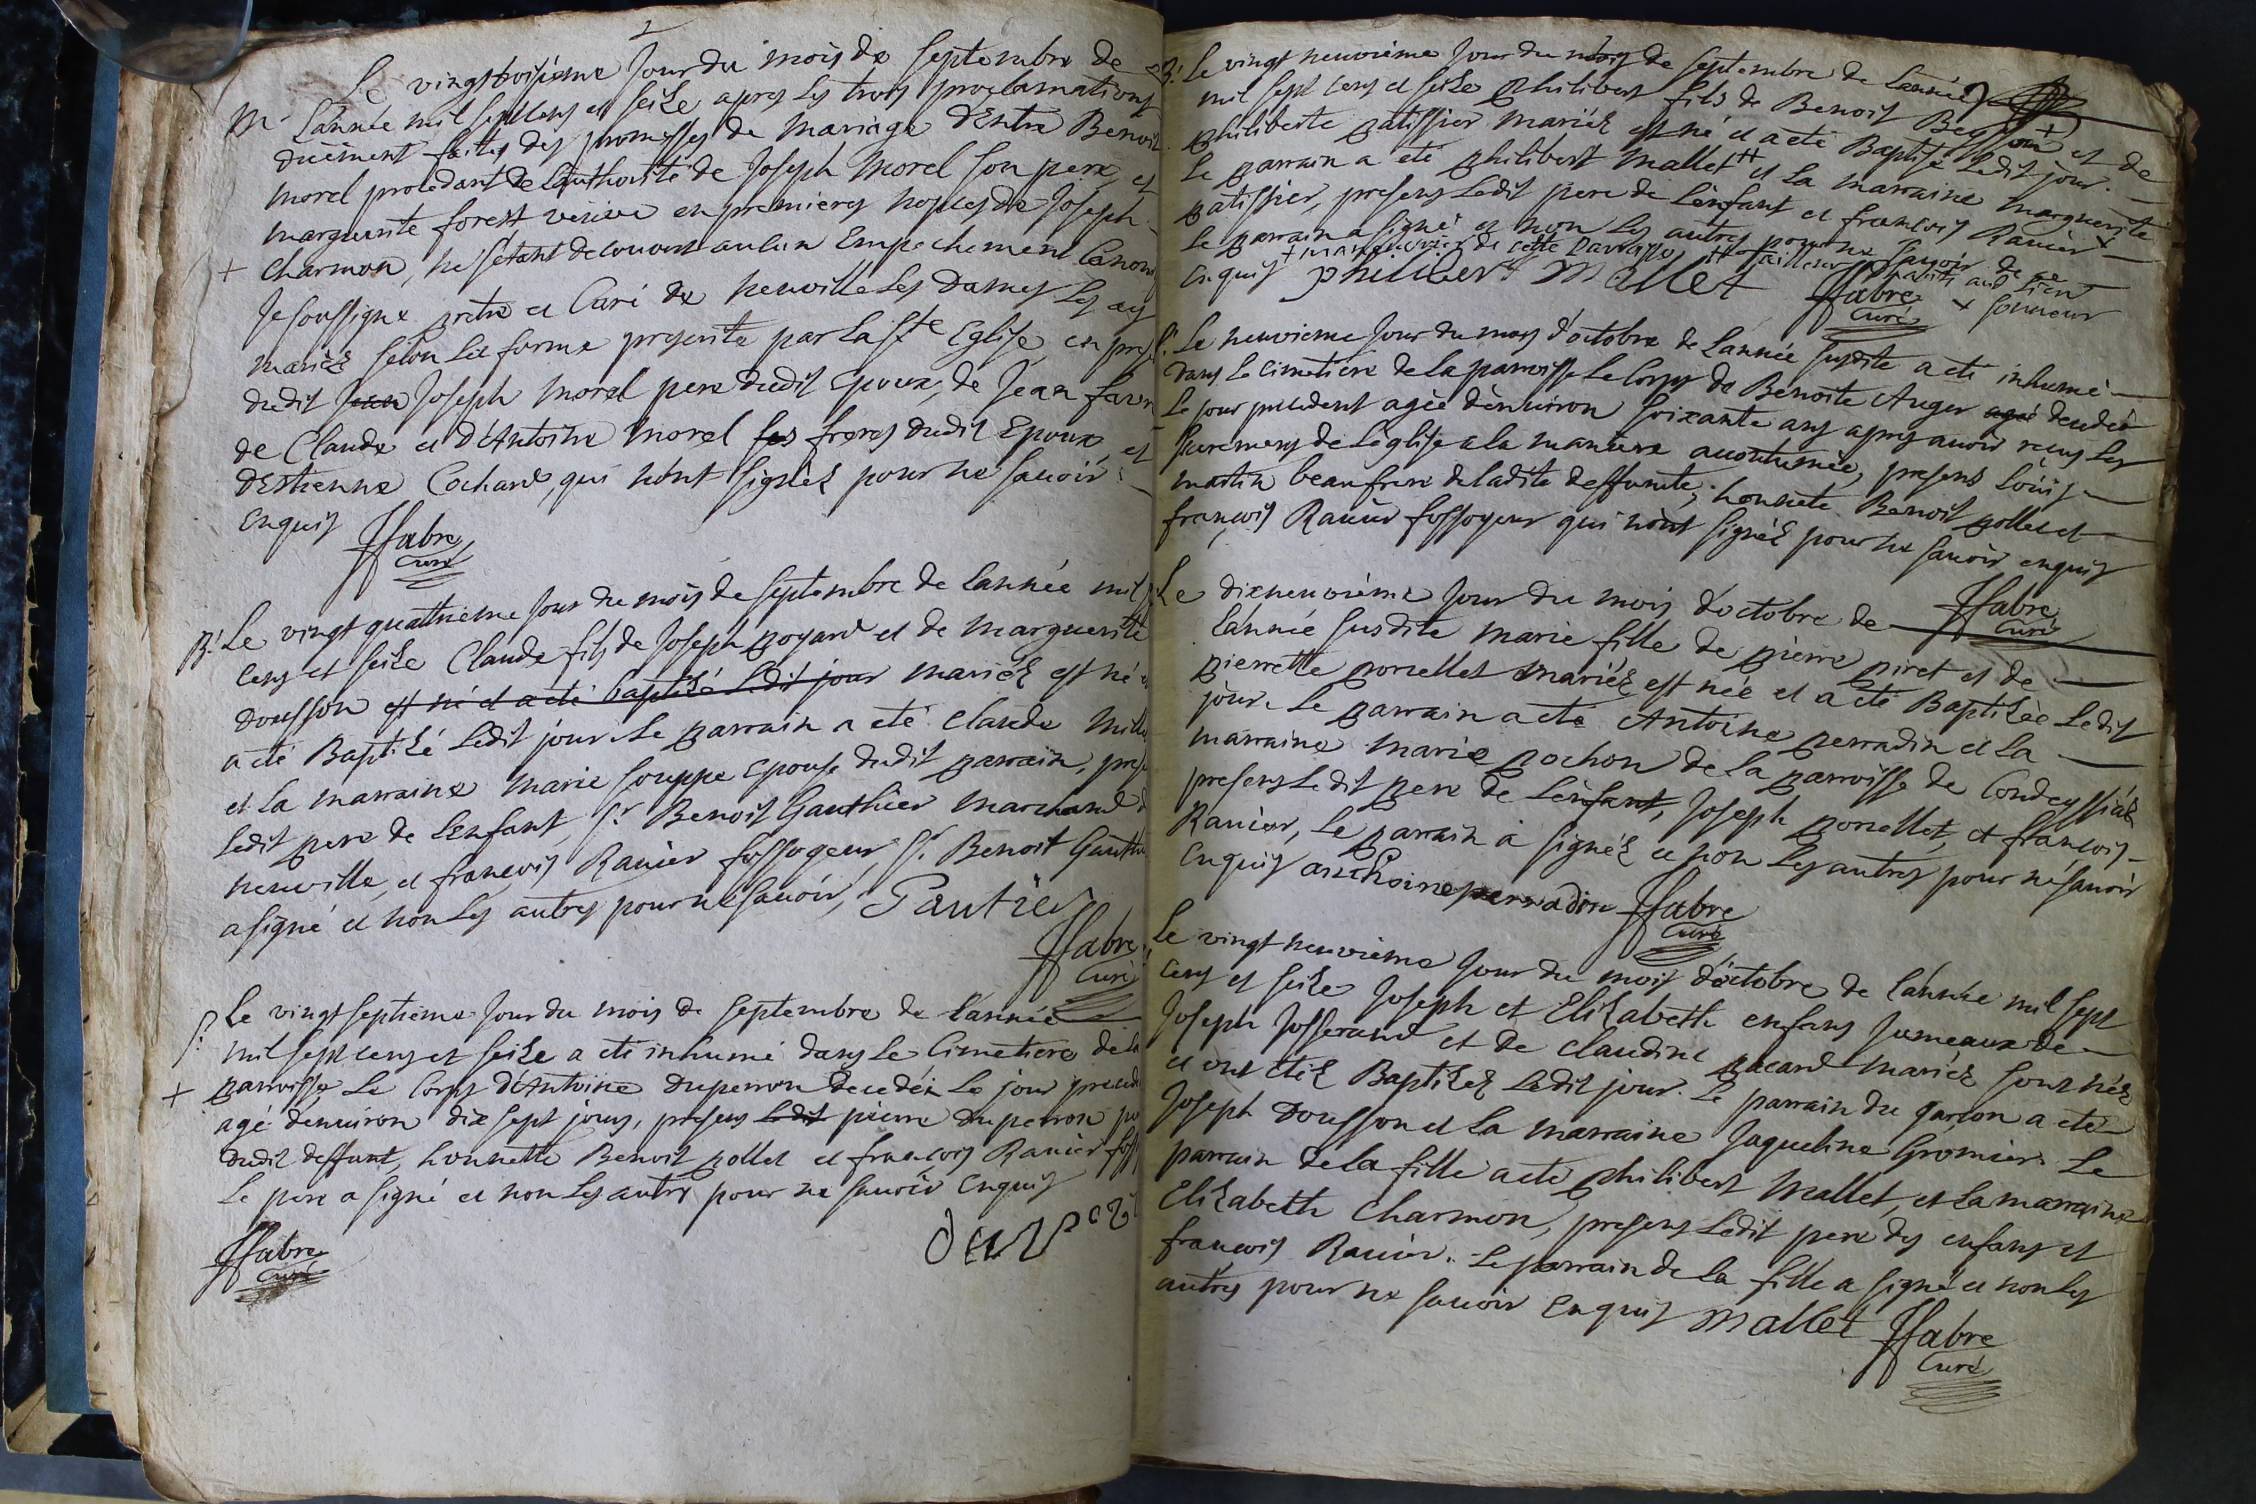 Le vingt troisième jour du mois de septembre de
M. Lannée mil sept cens et seize apres les trois proclamations
duëment faites des promesses de mariage d'Entre Benoit
morel procedant de Lauthorité de Joseph Morel son pere, et
marguerite forest veuve en premieres nopces de Joseph
+ Charmon, ne s'étant decouvert aucun Empechement Canon
Je soussigné pretre et Curé de neuville Les dames Les ay
mariéz selon La forme prescrite par La Ste Eglise, en pres
dudit Joseph morel pere dudit epoux, de Jean favr
de Claude et d'Antoine morel freres dudit Epoux, et
d'Estienne Cochard, qui n'ont signéz pour ne sauoir
enquis
ffabre
Curé
B. Le vingt quatrieme jour du mois de septembre de Lannée mil s
cens et seize Claude fils de Joseph poyard et de marguerite
dousson est né et a eté baptisé Ledit jour mariéz est né e
a eté Baptisé Ledit jour. Le parrain a eté Claude mill
et La marraine marie souppe epouse dudit parrain, pres
Ledit pere de L'enfant, Sr. Benoit Gauthier marchand d
neuville, et françois Rauier fossoyeur, Sr. Benoit Gauth
a signé et non Les autres pour ne sauoir, Gautier
ffabre
Curé
S. Le vingt septieme jour du mois de septembre de Lannée
mil sept cens et seize a eté inhumé dans Le Cimetiere de La
+ parroisse Le Corps d'Antoine duperron decedéz Le jour preced
agé denuiron dix sept jours, presens pierre duperron pe
dudit deffunt, honnette Benoit pollet et françois Rauier foss
Le pere a signé et non Les autres pour ne sauoir Enquis
duper
ffabre
Curé
B. Le vingt neuvième jour du mois de septembre de Lannée
mil sept cens et seize philibert fils de Benoit Besson + et de
philiberte patissier mariéz est né et a eté Baptisé Ledit jour.
Le parrain a eté philibert mallet ++ et La marraine marguerite
patissier, presens Ledit pere de L'enfant et françois Rauier x
Le parrain a signé et non Les autres pour ne sauoir de ce
Enquis + manoeuvrier de cette parroisse ++ tailleur
x sonneur
philibert mallet ffabre
Curé
S. Le neuvieme jour du mois d'octobre de Lannée susdite a eté inhumé
dans Le Cimetiere de La parroisse Le Corps de Benoite Auger agé decedée
Le jour precedent agée d'enuiron soixante ans apres auoir receu Les
sacremens de L'eglise a La maniere accoutumée, presens Loüis
martin beaufrere de Ladite deffunte, honnete Benoit pollet et
françois Rauier fossoyeur qui n'ont signéz pour ne sauoir enquis
ffabre
Curé
Le dixneuvième jour du mois d'octobre de
Lannée susdite marie fille de pierre piret et de
pierrette porcellet mariéz est née et a eté Baptisée Ledit
jour. Le parrain a eté Antoine perradin et La
marraine marie pochon de La parroisse de Condeyssiat
presens Ledit pere de L'enfant, Joseph porcellet, et françois
Rauier, Le parrain a signéz et non Les autres pour ne sauoir
Enquis anthoine perradin ffabre
Curé
Le vingt neuvieme jour du mois d'octobre de Lannée mil sept
cens et seize Joseph et Elizabeth enfans jumeaux de
Joseph Josserand et de Claudine pacard mariéz sont néz
et ont etéz Baptisez Ledit jour. Le parrain du garcon a eté
Joseph dousson et La marraine Jaqueline Gromier. Le
parrain de La fille a eté philibert Mallet, et La marraine
Elizabeth Charmon, presens Ledit pere des enfans et
françois Rauier. Le parrain de La fille a signé et non Les
autres pour ne sauoir Enquis mallet ffabre
Curé